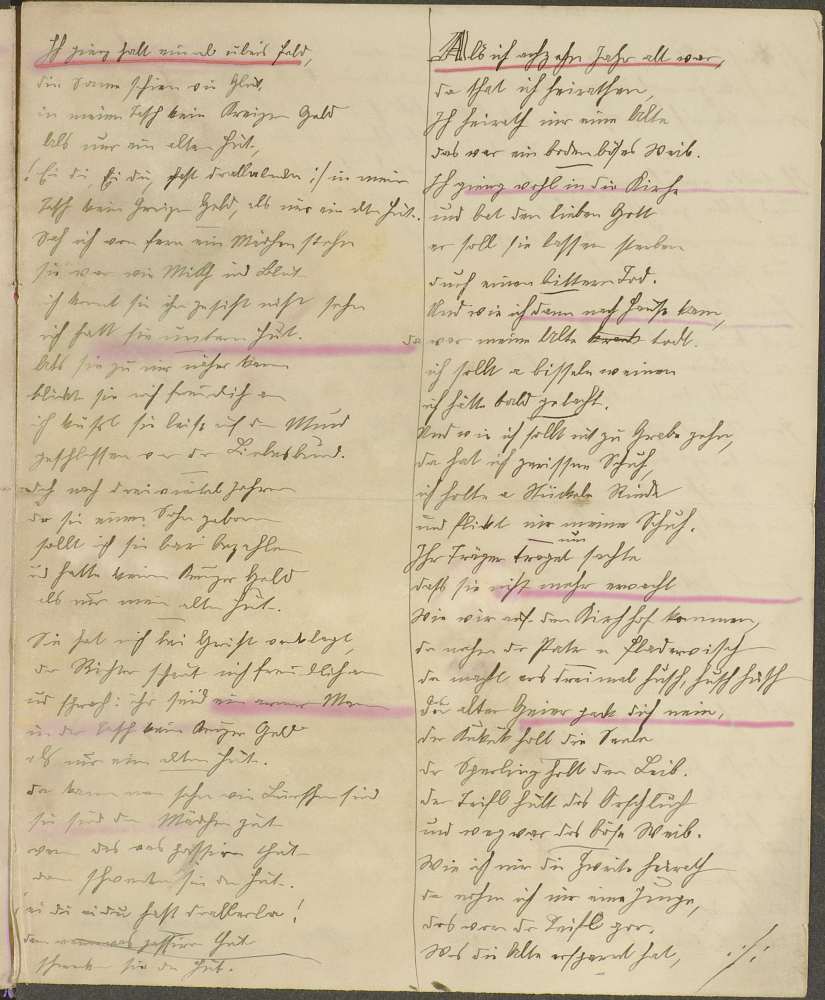 Ich gieng halt einmal übers Feld,
die Sonne schien wie Glut,
in meiner Tasch kein Kreizer Geld
Als nur ein alten Hut,
/: Ei du, Ei du, hast drallalala :/ in meiner
Tasch kein Kreizer Geld, als nur ein alten Hut.
Sah ich von fern ein Mädchen stehn
sie war wie Milch und Blut
ich konnt sie ihr gesicht nicht sehn
ich hatt sie unterm Hut.
Als sie zu mir näher kam
blickt sie mich freundlich an
ich küsst sie leise auf den Mund
geschlossen war der Liebesbund.
doch nach dreiviertel Jahren
da sie einen Sohn geboren
sollt ich sie bar bezahlen
und hatte keinen Kreuzer Geld
als nur mein alten Hut.
Sie hat mich bei Gericht verklagt,
der Richter schaut mich freundlich an
und sprach: ihr seid ein armer Mann
in der Tasch kein Kreuzer Geld
als nur ein alten Hut.
da kann man sehn wie Burschen sind
sie sind den Mädchen gut
wenn das was passiren thut
dann schwenken sie den Hut.
ei du ei du hast drallerla!
dann wenn was passiren thut
schwenken sie den Hut.
Als ich achzehn Jahr alt war,
da that ich heirathen,
Ich heirath mir eine Alte
das war ein bodenböses Weib.
Ich gieng wohl in die Kirche
und bat den lieben Gott
er soll sie lassen sterben
durch einen bittern Tod.
Und wie ich dann nach Hause kam,
da war meine Alte krank todt.
ich sollt a bisserle weinen
ich hätte bald gelacht.
Und wie ich sollt mit zu Grabe gehn,
da hat ich zerissene Schuh,
ich holte a Stückele Rinde
und flickt mir meine Schuh.
Ihr Träger traget nur sachte
daß sie nicht mehr erwacht
Wie wir auf den Kirchhof kommen,
da nahm der Pater a Fladerwisch
da macht ers dreimal husch, husch husch
der alte Geier pack dich nein,
der Kukuk holt die Seele
der Sperling holt den Leib.
der Teifl hült das Orschluch
und weg war das böse Weib.
Wie ich mir die Zweite heirath
da nahm ich mir eine Junge,
das war der Teifl gar.
Was die Alte erspart hat, ./: